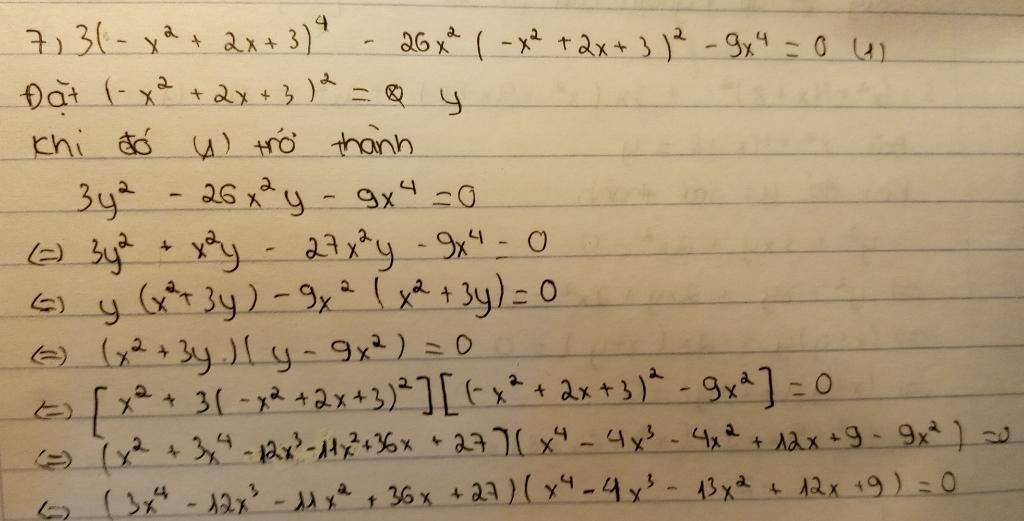 7, 3(-x² + 2x + 3)⁴ - 26x² (-x² + 2x + 3)² - 9x⁴ = 0 (1)
Đặt (-x² + 2x + 3)² = y
Khi đó (1) trở thành
3y² - 26x²y - 9x⁴ = 0
⇔ 3y² + x²y - 27x²y - 9x⁴ = 0
⇔ y (x² + 3y) - 9x² (x² + 3y) = 0
⇔ (x² + 3y)(y - 9x²) = 0
⇔ [x² + 3(-x² + 2x + 3)²][(-x² + 2x + 3)² - 9x²] = 0
⇔ (x² + 3x⁴ - 12x³ - 11x² + 36x + 27)(x⁴ - 4x³ - 4x² + 12x + 9 - 9x²) = 0
⇔ (3x⁴ - 12x³ - 11x² + 36x + 27)(x⁴ - 4x³ - 13x² + 12x + 9) = 0